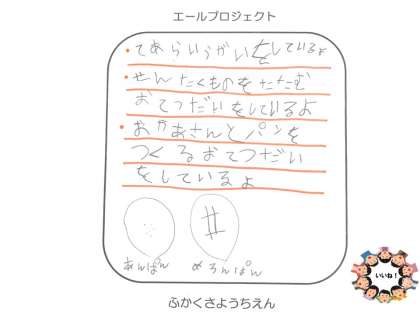 エールプロジェクト
・てあらいうがいをしているよ
・せんたくものをたたむ
おてつだいをしているよ
・おかあさんとパンを
つくるおてつだい
をしているよ
あんぱん
めろんぱん
いいね!
ふかくさようちえん